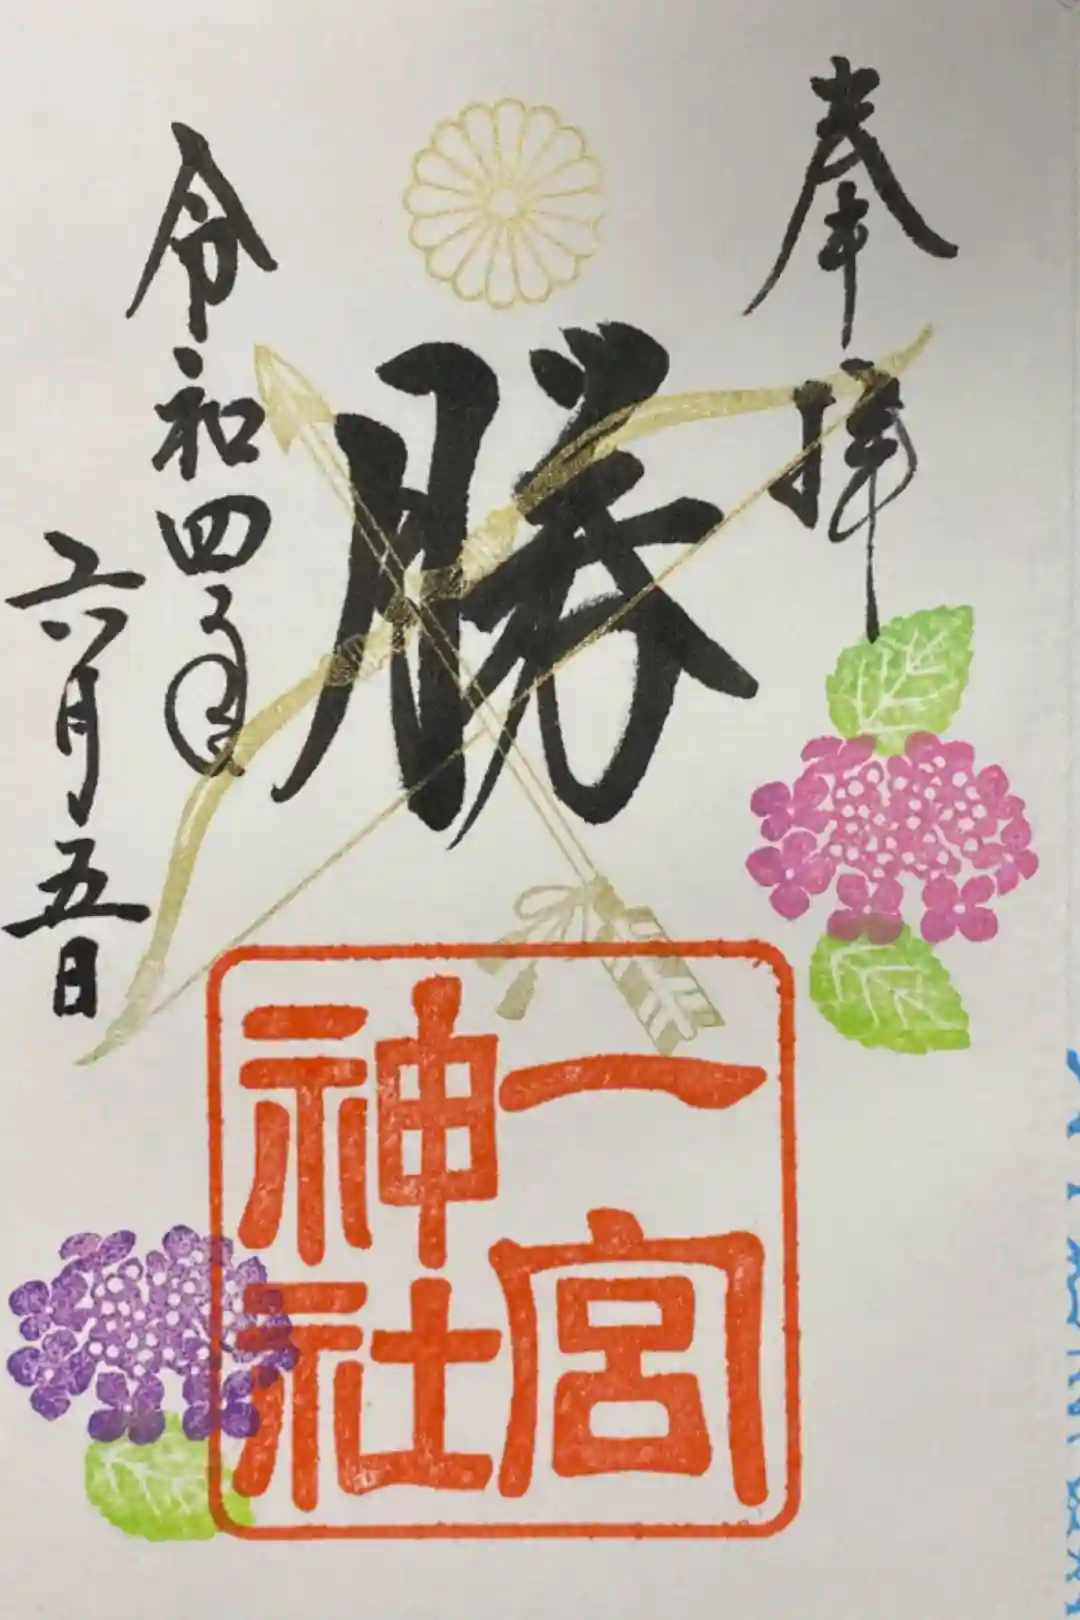 奉拝
勝
一宮
神社
令和四年
六月五日